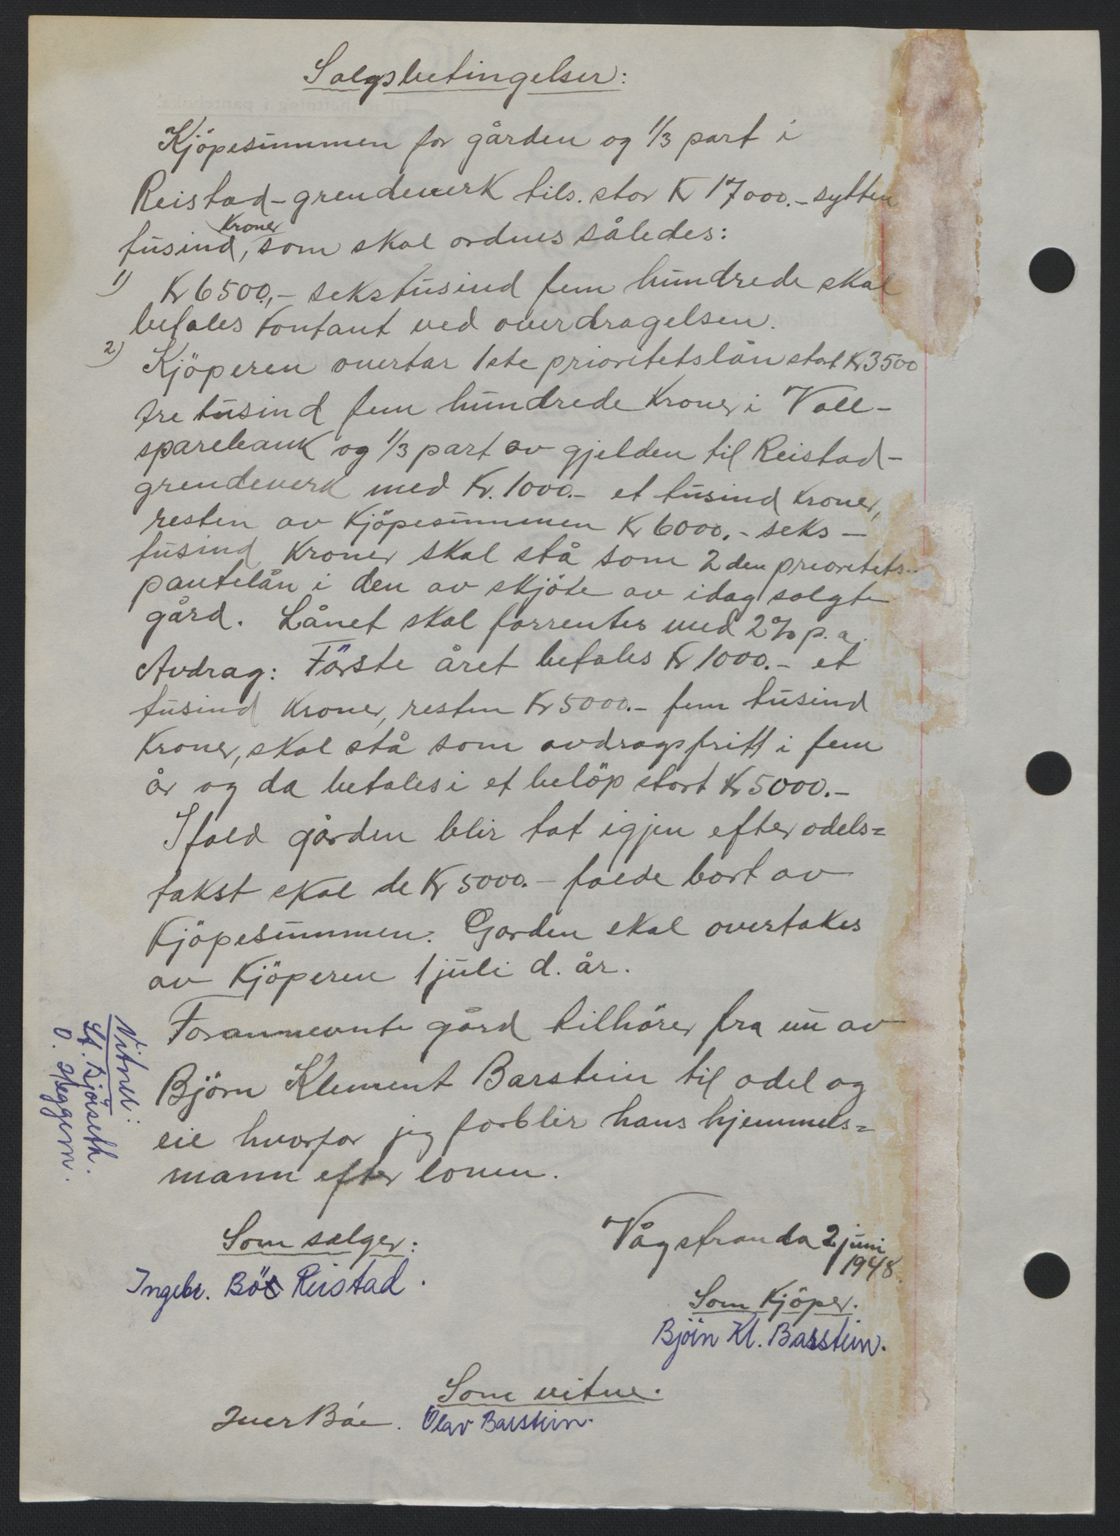 Salgsbetingelser:
Kjöpesummen for gården og 1/3 part i
Reistad-grendeverk tils. stor Kr 17000.- sytten
tusind Kroner, som skal ordnes således:
1) Kr 6500,- sekstusind fem hundrede skal
betales Kontant ved overdragelsen.
2) Kjöperen overtar 1ste prioritetslån stort Kr 3500
tre tusind fem hundrede Kroner i Voll-
sparebank og 1/3 part av gjelden til Reistad-
grendeverk med Kr. 1000.- et tusind Kroner,
resten av Kjöpesummen Kr 6000.- seks-
tusind Kroner skal stå som 2den prioritets-
pantelån i den av skjöte av idag solgte
gård. Lånet skal forrentes med 2% p.a.
Avdrag: Förste året betales Kr 1000.- et
tusind Kroner, resten Kr 5000.- fem tusind
Kroner, skal stå som avdragsfritt i fem
år og da betales i et belöp stort Kr 5000.-
Ifald gården blir tat igjen efter odels=
takst skal de Kr 5000.- falde bort av
Kjöpesummen. Garden skal overtakes
av Kjöperen 1 juli d. år.
Forannevnte gård tilhörer fra nu av
Björn Klement Barstein til odel og
eie hvorfor jeg forblir hans hjemmels=
mann efter loven.
Vitner:
St. Bjöiseth.
O. Heggem.
Vågstranda 2 juni
1948.
Som sælger:
Ingebr. Böe Reistad.
Som Kjöper.
Björn Kl. Barstein.
Som vitne.
Iver Böe. Olav Barstein.